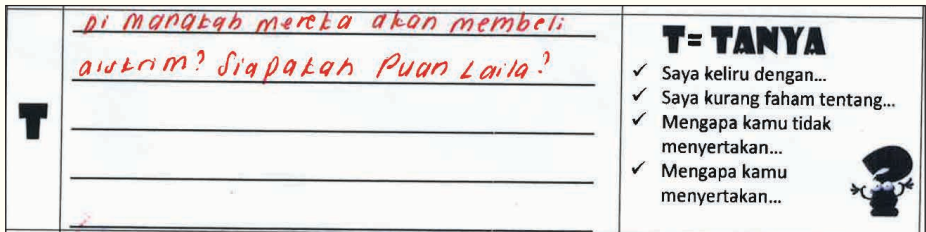 Di manakah mereka akan membeli
aiskrim? Siapakah Puan Laila?
T
T= TANYA
✓ Saya keliru dengan...
✓ Saya kurang faham tentang...
✓ Mengapa kamu tidak
menyertakan...
✓ Mengapa kamu
menyertakan...